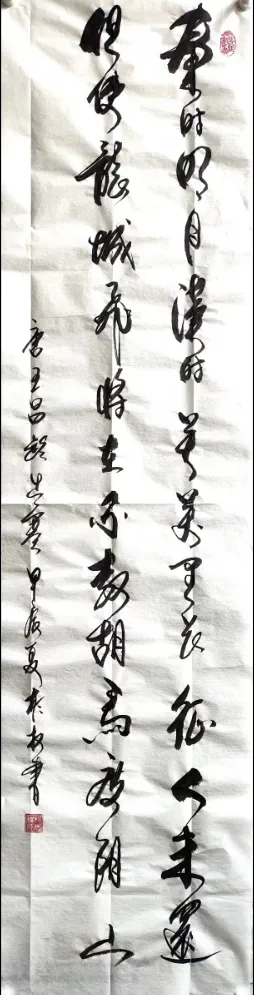 秦时明月漢时关萬里长征人未還
但使龍城飛將在不教胡馬度阴山
唐王昌龄出塞甲辰夏書